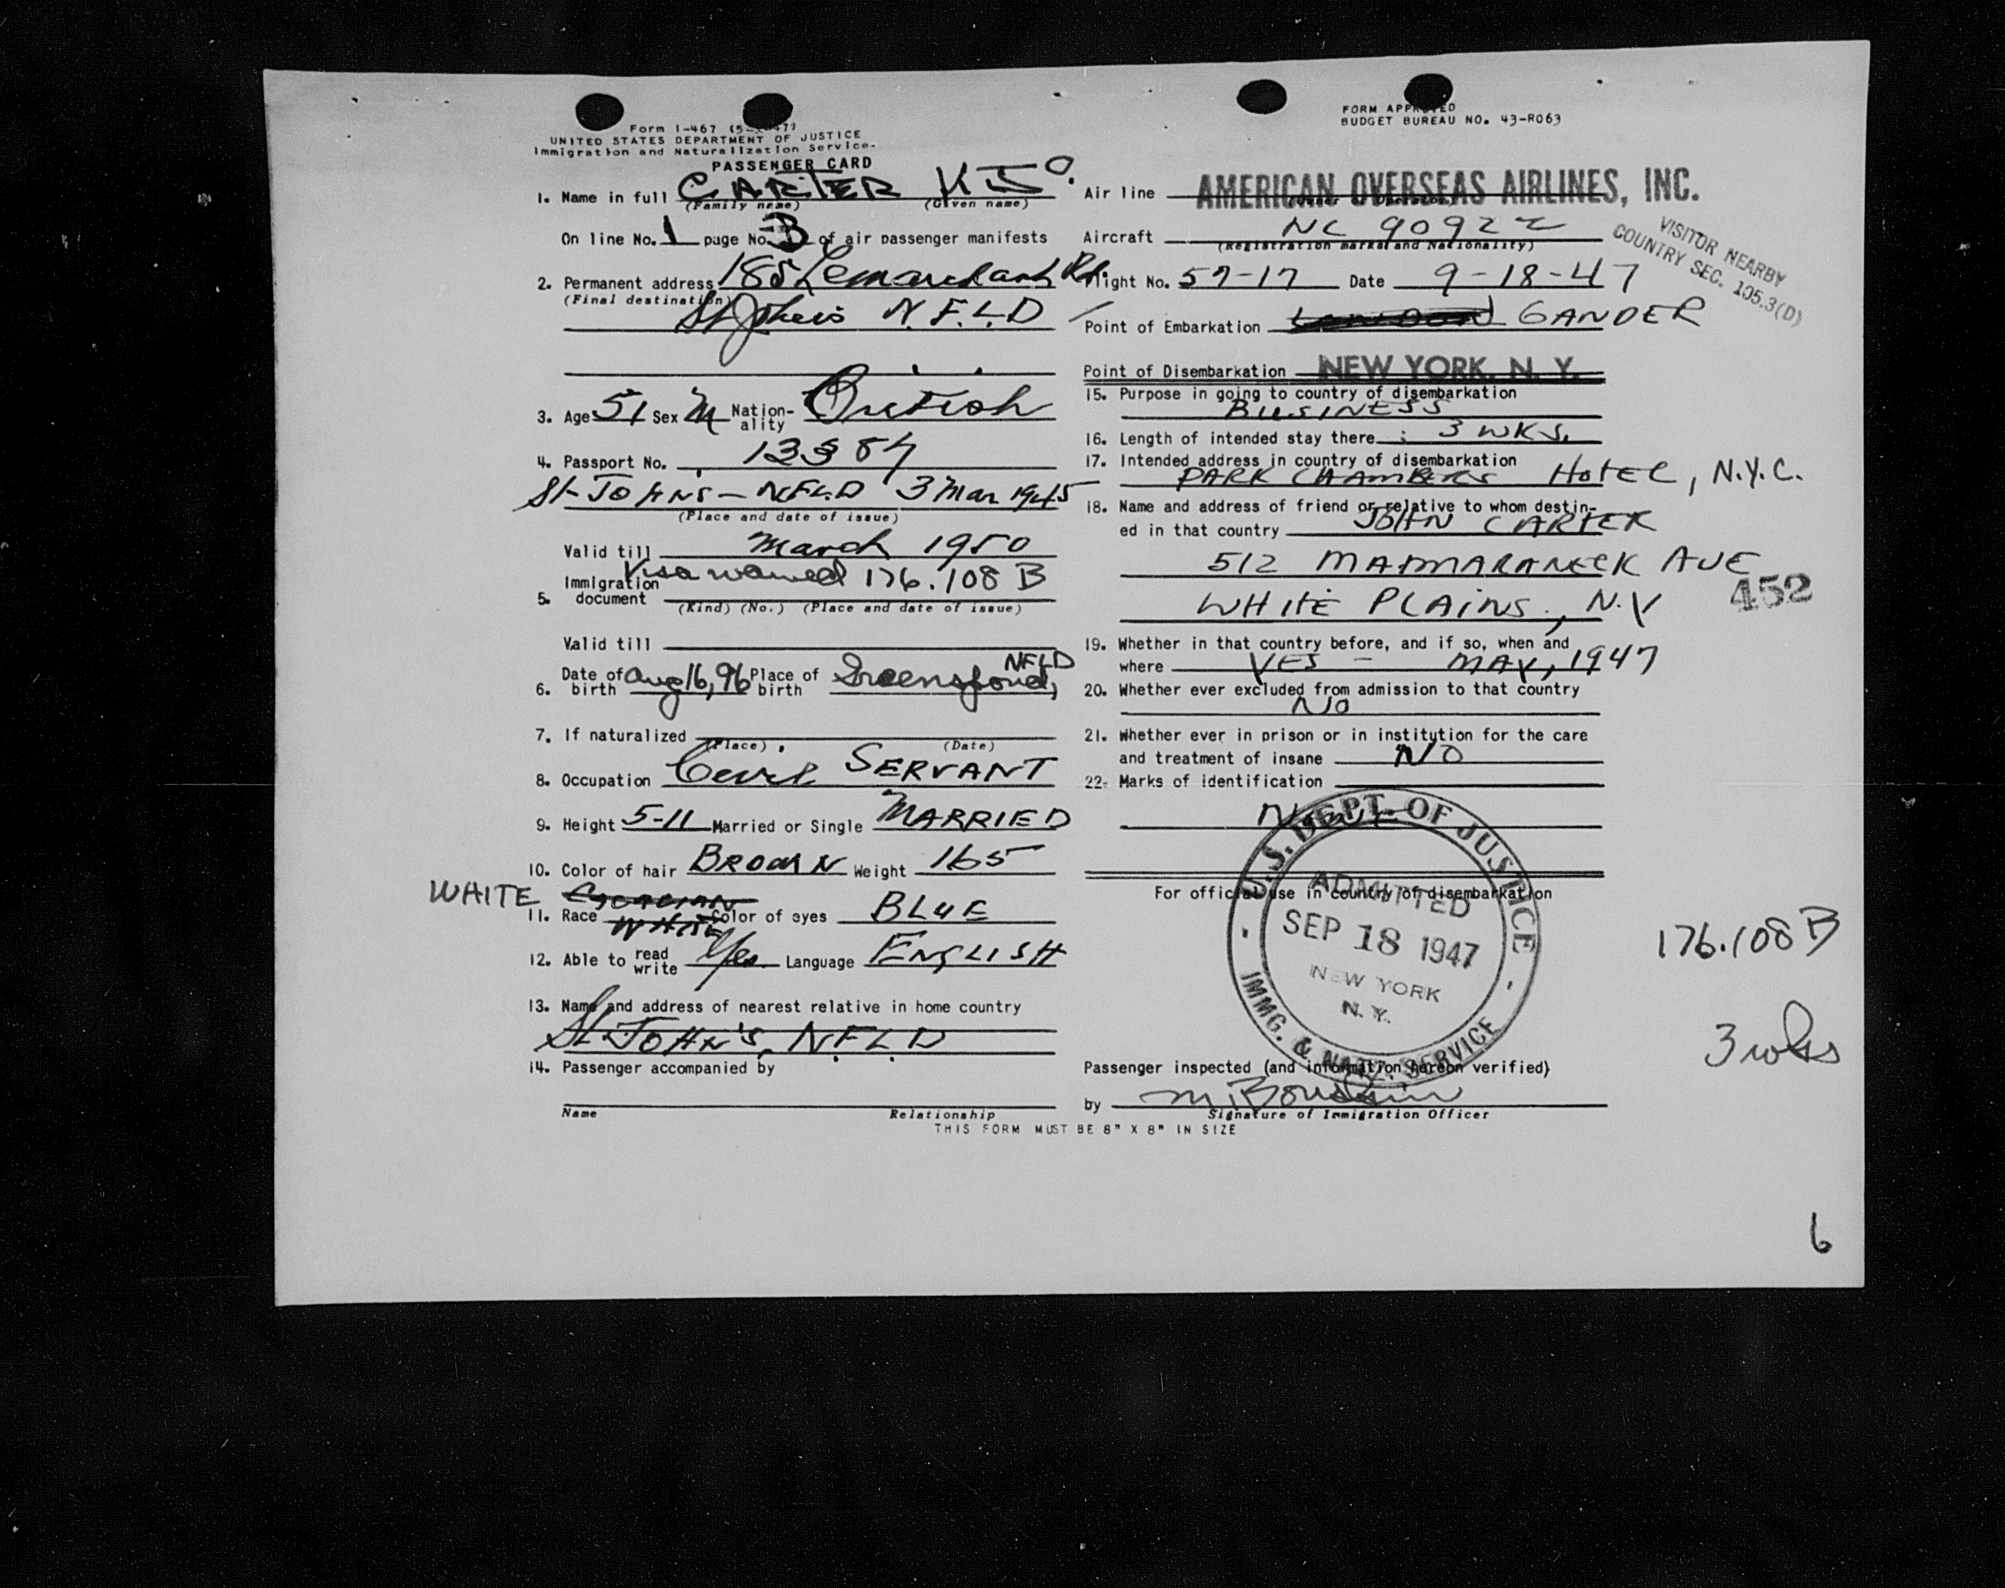 Form I-467
UNITED STATES DEPARTMENT OF JUSTICE
Immigration and Naturalization Service-
PASSENGER CARD
FORM APPROVED
BUDGET BUREAU NO. 43-R063
1. Name in full CARTER K J O.
(Family name) (Given name)
On line No. 1 page No. 3 of air passenger manifests
2. Permanent address 185 Lemarchant Rd.
(Final destination)
St Johns N.F.L.D
3. Age 51 Sex M Nationality British
4. Passport No. 13387
St. JOHNS - NFLD 3 Mar 1945
(Place and date of issue)
Valid till March 1950
Visa waived 176.108 B
5. Immigration document
(Kind) (No.) (Place and date of issue)
Valid till
6. Date of birth Aug 16, 96 Place of birth Greenspond, NFLD
7. If naturalized
(Place) (Date)
8. Occupation Civil SERVANT
9. Height 5-11 Married or Single MARRIED
10. Color of hair BROWN Weight 165
WHITE
11. Race WHITE Color of eyes BLUE
12. Able to read write Yes Language ENGLISH
13. Name and address of nearest relative in home country
St. JOHN'S, N.F.L.D
14. Passenger accompanied by
Name Relationship
Air line AMERICAN OVERSEAS AIRLINES, INC.
(Owner or Operator)
Aircraft NC 90922
(Registration marks and Nationality)
VISITOR NEARBY
COUNTRY SEC. 105.3(D)
Flight No. 57-17 Date 9-18-47
Point of Embarkation LONDON GANDER
Point of Disembarkation NEW YORK, N. Y.
15. Purpose in going to country of disembarkation
BUSINESS
16. Length of intended stay there 3 WKS.
17. Intended address in country of disembarkation
PARK CHAMBERS HOTEL, N.Y.C.
18. Name and address of friend or relative to whom destin-
ed in that country JOHN CARTER
512 MAMARANECK AVE
WHITE PLAINS, N.Y
452
19. Whether in that country before, and if so, when and
where YES - MAY, 1947
20. Whether ever excluded from admission to that country
NO
21. Whether ever in prison or in institution for the care
and treatment of insane NO
22. Marks of identification
None
For official use in country of disembarkation
U.S. DEPT. OF JUSTICE
ADMITTED
SEP 18 1947
NEW YORK
N. Y.
IMMG. & NATZ. SERVICE
176.108 B
3 wks
Passenger inspected (and information hereon verified)
by
Signature of Immigration Officer
THIS FORM MUST BE 8" X 8" IN SIZE
6